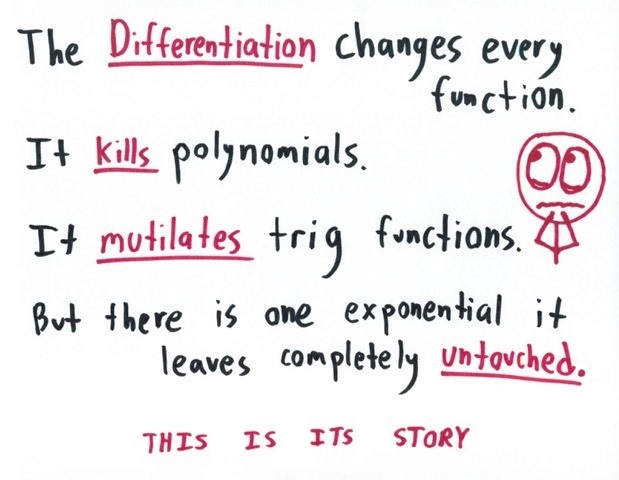 The Differentiation changes every
function.
It kills polynomials.
It mutilates trig functions.
But there is one exponential it
leaves completely untouched.
THIS IS ITS STORY